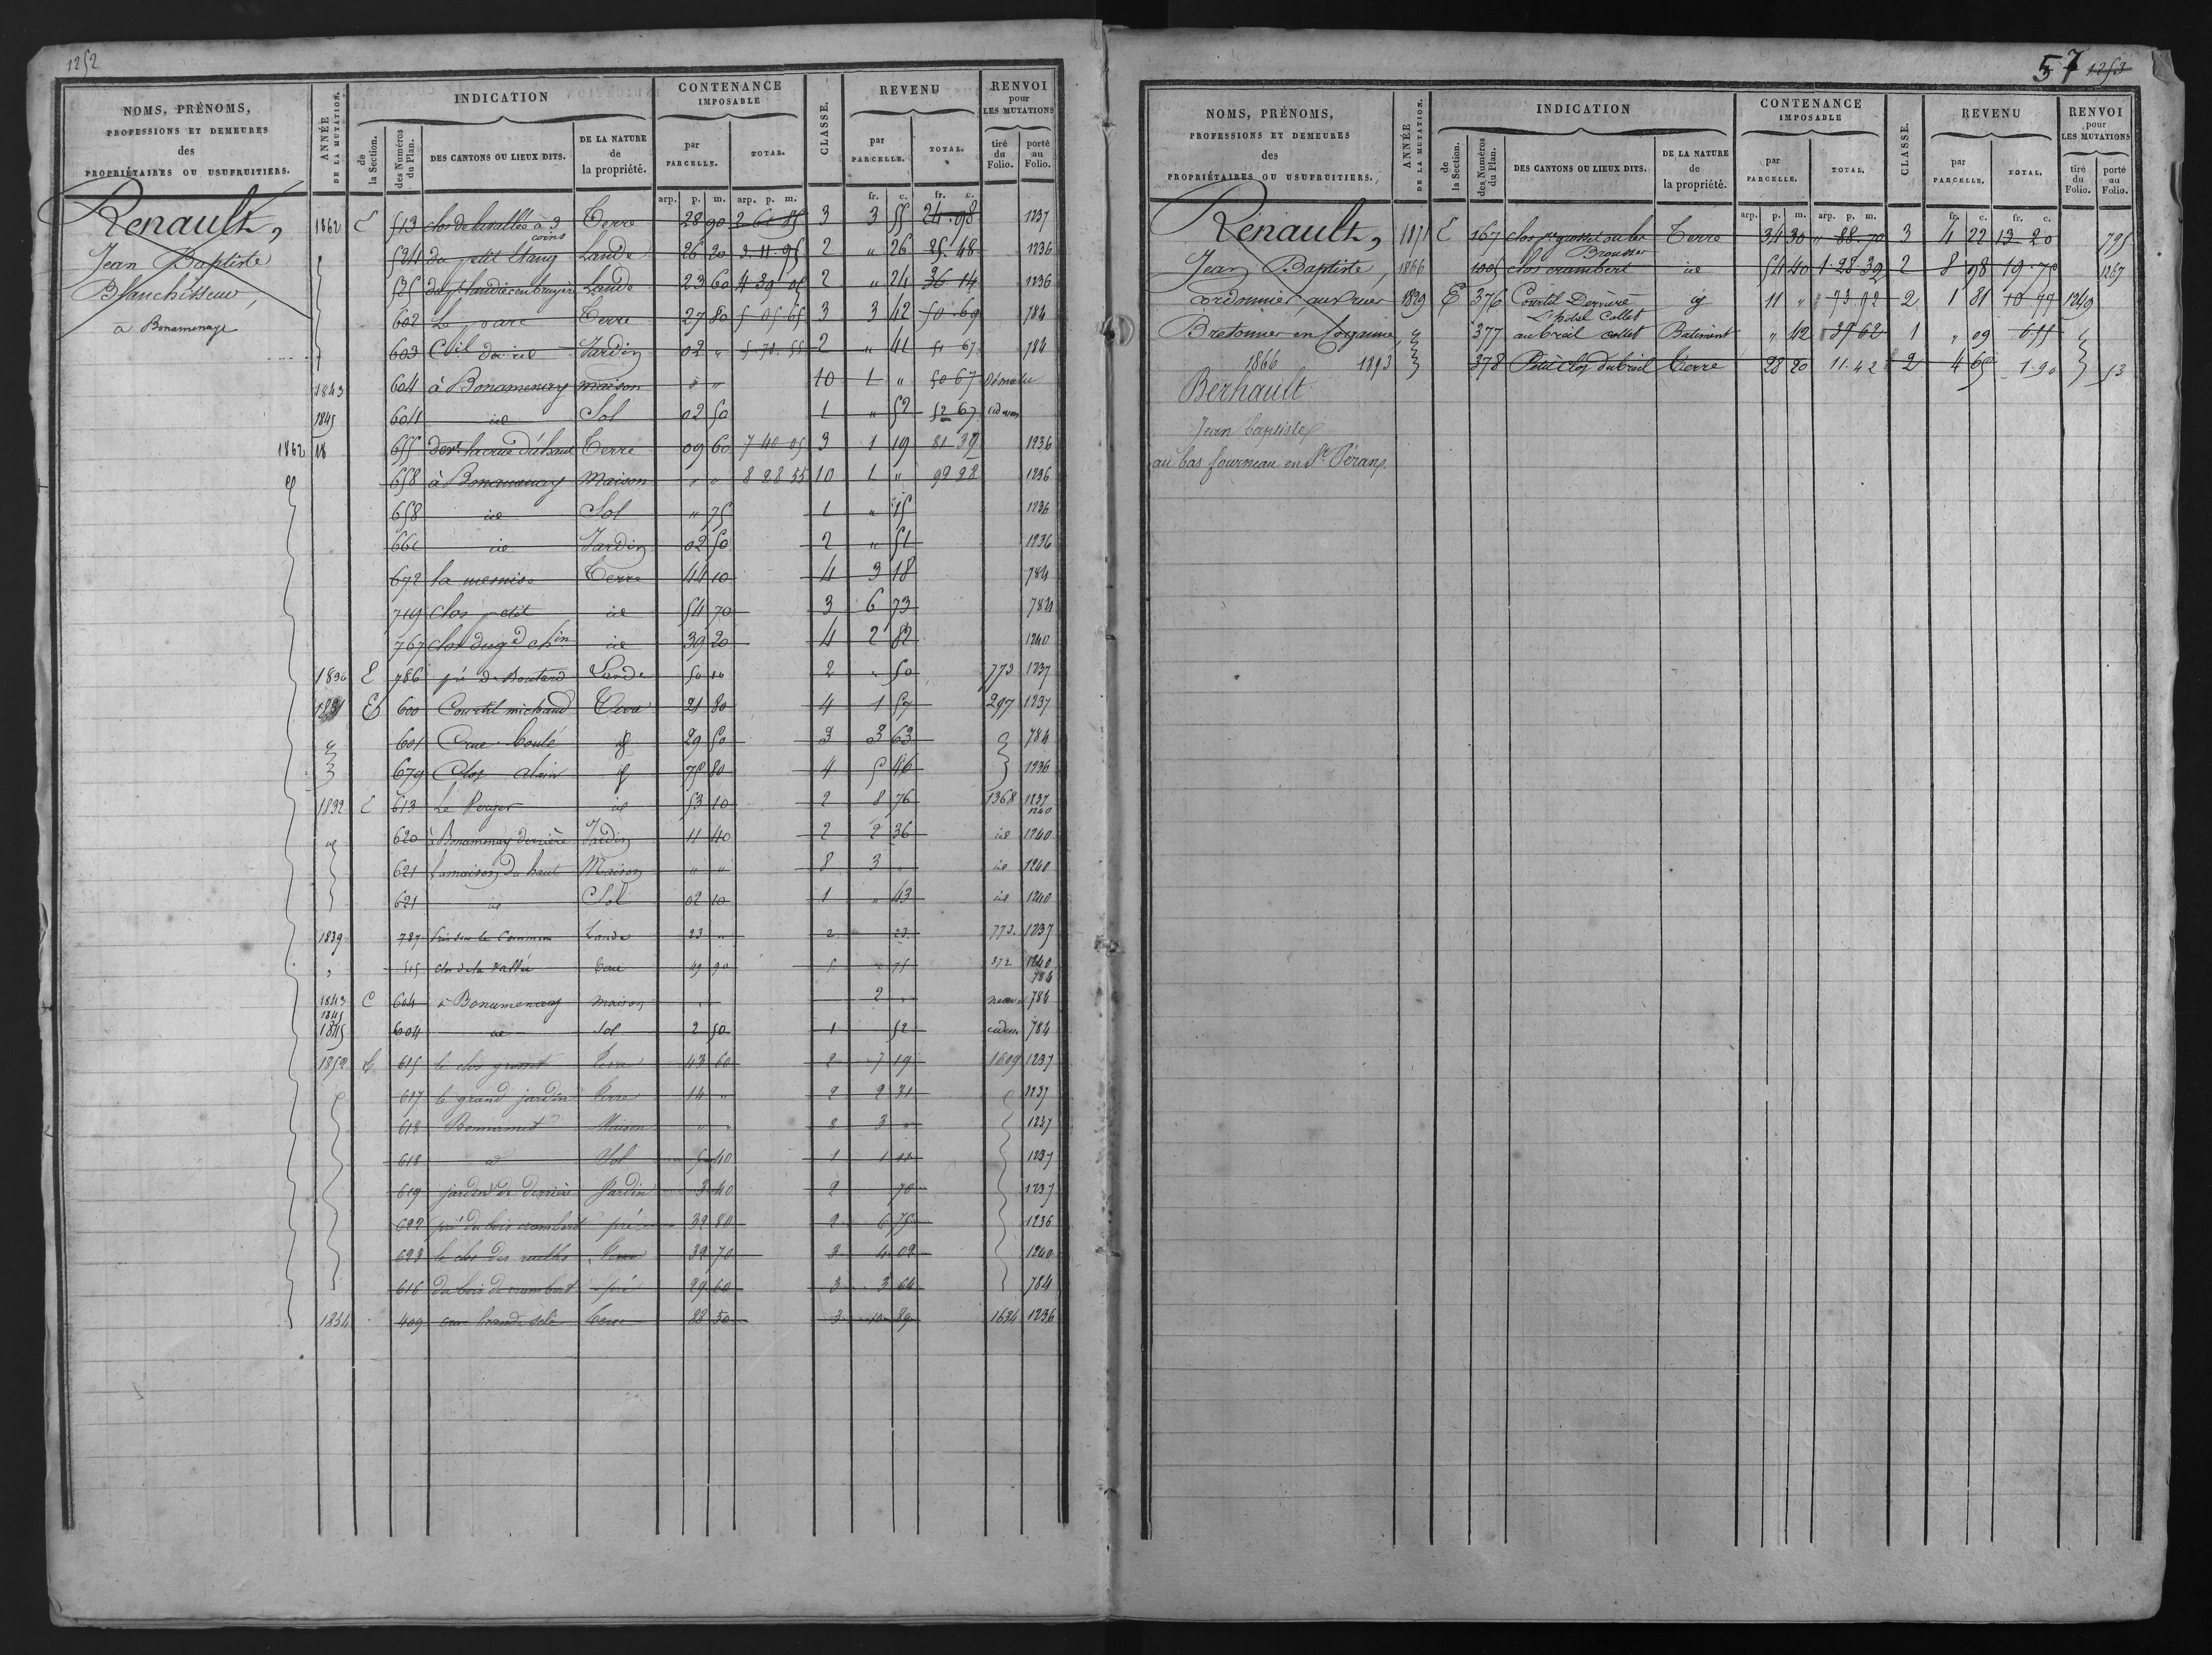 1252
NOMS, PRÉNOMS,
PROFESSIONS ET DEMEURES
des
PROPRIÉTAIRES OU USUFRUITIERS.
ANNÉE DE LA MUTATION.
INDICATION
de la Section.
des Numéros du Plan.
DES CANTONS OU LIEUX DITS.
DE LA NATURE de la propriété.
CONTENANCE IMPOSABLE
par PARCELLE.
TOTAL.
CLASSE.
REVENU
par PARCELLE.
TOTAL.
RENVOI pour LES MUTATIONS
tiré du Folio.
porté au Folio.
arp. p. m. arp. p. m. fr. c. fr. c.
Renault,
Jean Baptiste
Blanchisseur,
à Bonamenaye
1862 C 513 clos de la vallée à 3 coins Terre 28 90 2 61 85 3 3 55 24.98 1237
524 du petit Etang Lande 26 20 3.11.95 2 " 26 25.48 1236
525 Lande 23 60 4 39 05 2 " 24 36 14 1236
602 Le parc Terre 27 80 5 05 65 3 3 42 50.69 784
603 Jardin 02 " 5 78.55 2 " 41 51 67 784
1843 604 à Bonamenay maison " " 10 1 " 50 67 Démolie
1845 604 id Sol 02 50 1 " 52 52 67
1862 18 655 Terre 09 60 7 40 05 3 1 19 81 39 1236
658 à Bonamenay Maison " " 8 28 55 10 1 " 92 28 1236
658 id Sol " 75 1 " 15 1236
661 id Jardin 02 50 2 " 51 1236
672 Terre 44 10 4 3 18 784
749 Clos petit id 54 70 3 6 73 784
767 clos du gd chin id 39 20 4 2 82 1240
1830 E 786 pré de Boutard Lande 50 10 2 " 50 773 1237
1831 E 600 Courtil michaud Terre 21 80 4 1 57 297 1237
601 Crue boulé id 29 50 3 3 63 784
679 Clos alain id 75 80 4 5 46 1236
1832 C 613 Le Verger id 53 10 2 8 76 1368 1237
1240
620 à Bonamenay derrière Jardin 11 40 2 2 36 id 1240
621 la maison du haut Maison " " 8 3 " id 1240
621 id Sol 02 10 1 " 43 id 1240
1839 787 Pris sur le Commun Lande 23 " 2 23 773 1237
515 clos de la vallée Terre 49 90 5 75 272 1240
784
1843 C 604 à Bonamenay maison " 2 " 784
1845
1845 604 id Sol 2 50 1 52 784
1852 C 615 le clos Terre 43 60 2 7 19 1609 1237
617 le grand jardin Terre 14 " 2 2 31 1237
618 Bonnamet Maison " " 8 3 " 1237
618 d Sol 5 40 1 1 11 1237
619 jardin de derrière Jardin 3 40 2 70 1237
622 pré du bois crambert pré 32 80 2 6 78 1236
623 le clos des ruelles Terre 39 70 3 4 02 1240
616 du bois de crambert pré 29 60 3 3 64 784
1854 409 Terre 88 50 3 10 89 1634 1236
57 1253
NOMS, PRÉNOMS,
PROFESSIONS ET DEMEURES
des
PROPRIÉTAIRES OU USUFRUITIERS.
ANNÉE DE LA MUTATION.
INDICATION
de la Section.
des Numéros du Plan.
DES CANTONS OU LIEUX DITS.
DE LA NATURE de la propriété.
CONTENANCE IMPOSABLE
par PARCELLE.
TOTAL.
CLASSE.
REVENU
par PARCELLE.
TOTAL.
RENVOI pour LES MUTATIONS
tiré du Folio.
porté au Folio.
arp. p. m. arp. p. m. fr. c. fr. c.
Renault,
Jean Baptiste,
cordonnier aux rues
Bretonnier en Cogname
1866 1873
Bernault
Jean baptiste
au bas fourneau en St. Véran
1871 C 167 Terre 34 30 " 88.70 3 4 22 13 20 795
Brousses
1866 1005 clos crambert id 54 40 1.28.39 2 8 98 19.75 1267
1829 E 376 Courtil Derrière id 11 " " 73 92 2 1 81 10 77 1249
L'hotel Collet
377 au breil collet Batiment " 42 " 39 62 1 " 09 6.55
378 Petit clos du breil Terre 28 20 11.42 2 4 65 1.90 53